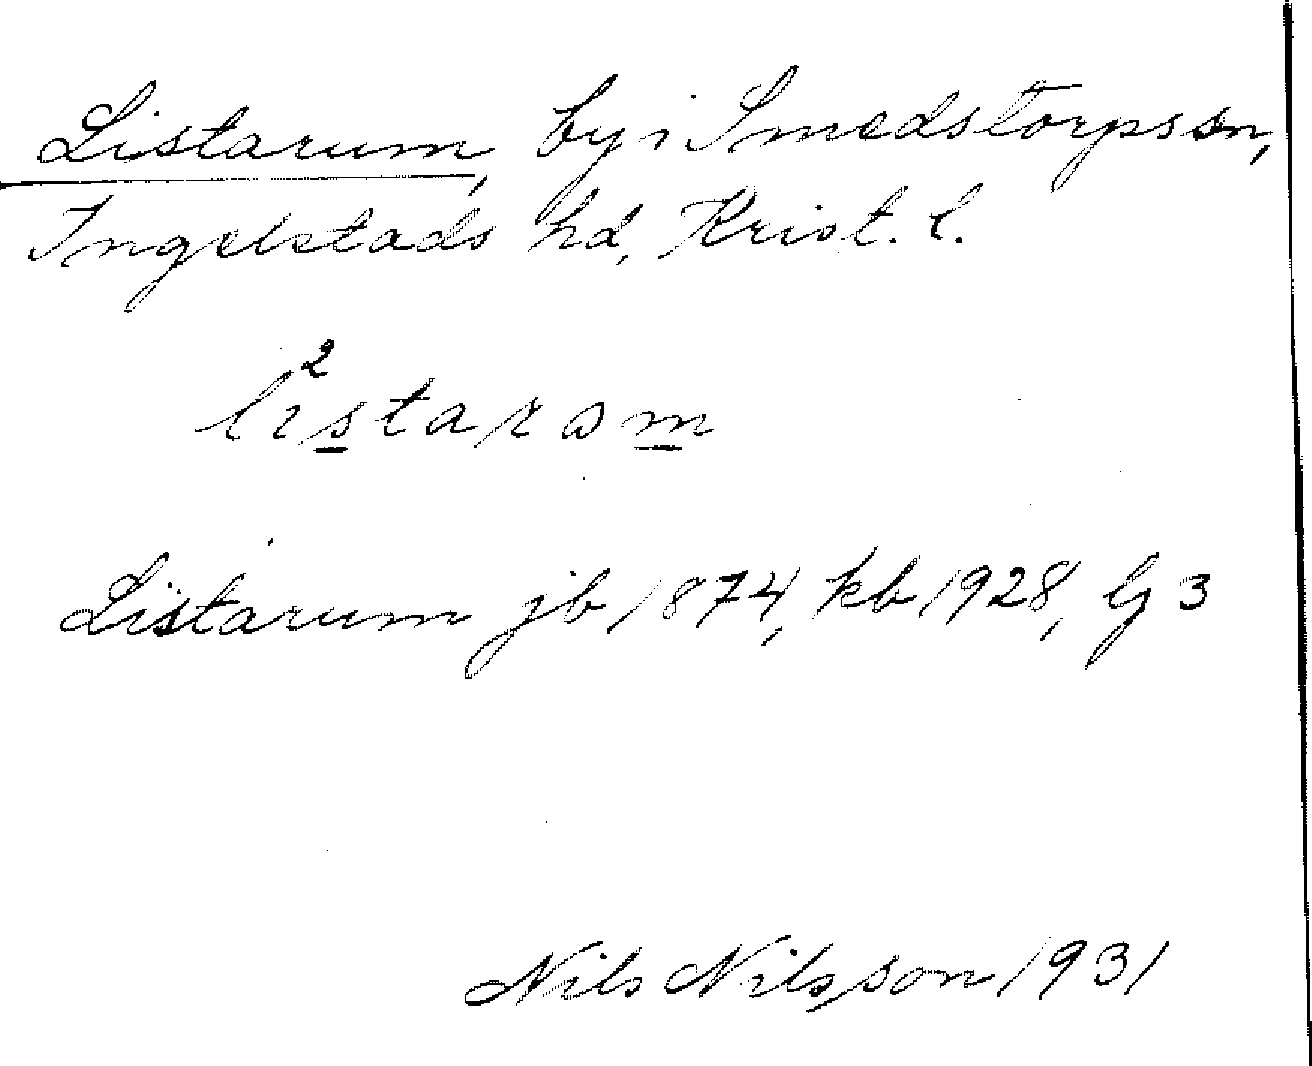 Listarum, by i Smedstorps sn,
Ingelstads hd, Krist. l.
li²starɷm
Listarum jb 1874, kb 1928, G 3
Nils Nilsson 1931